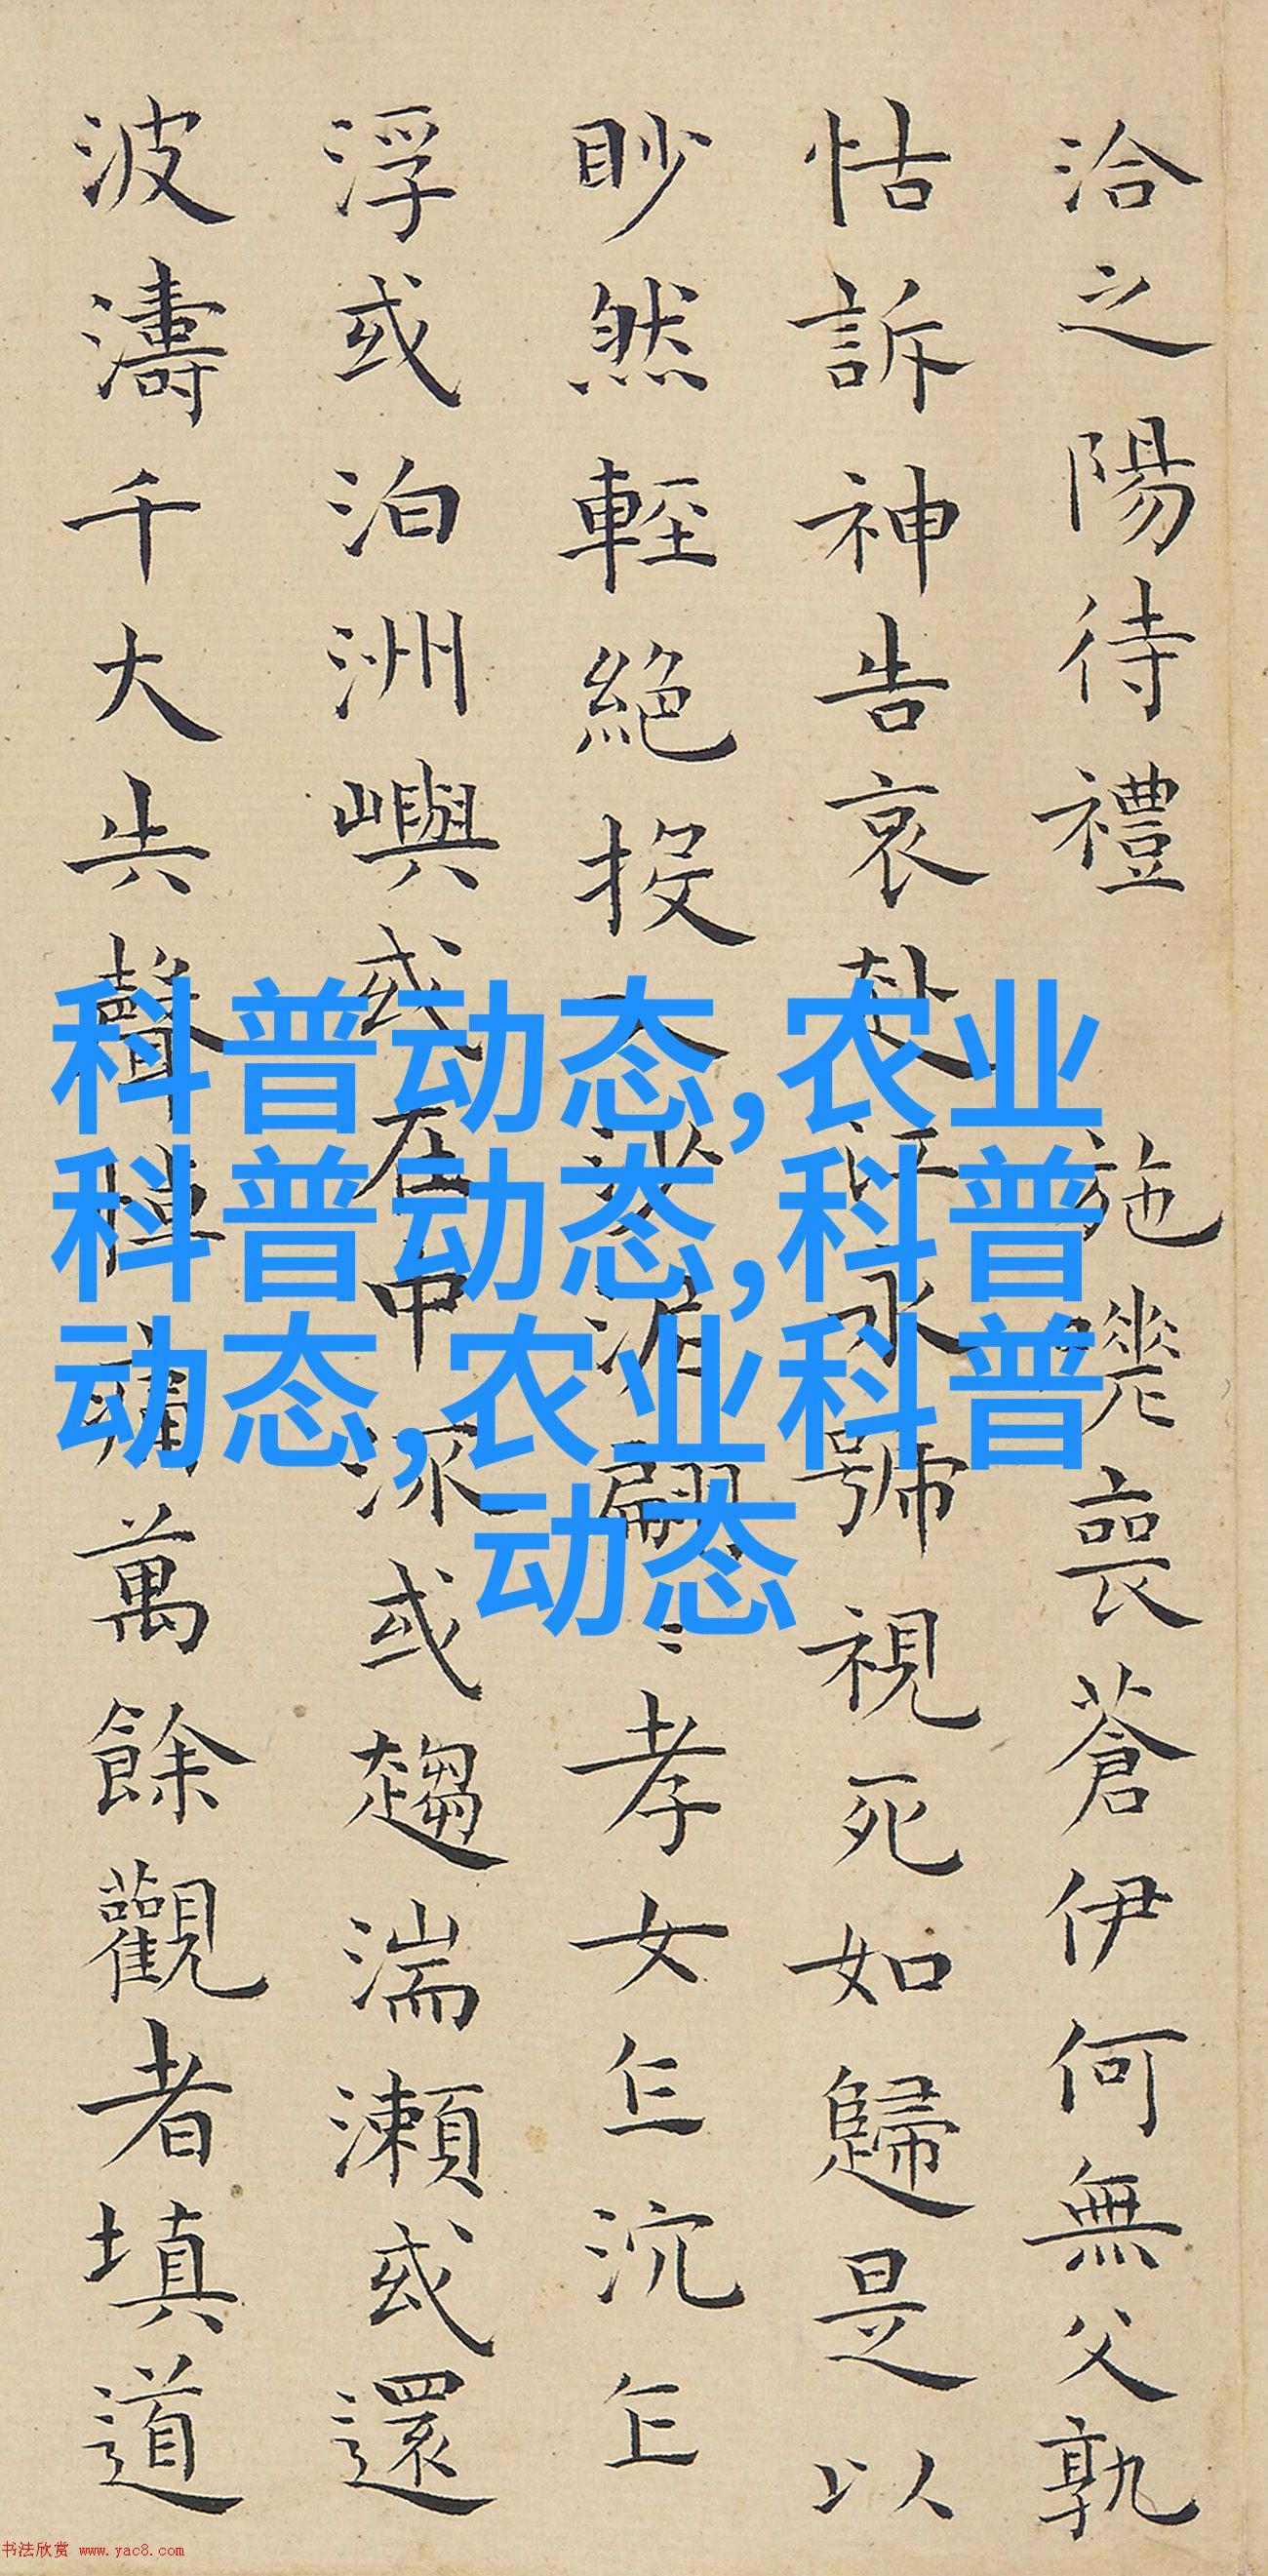 洽之陽待禮施嗟喪蒼伊何無父孰
怙訴神告哀赴江永號視死如歸是以
眇然輕絕投入沙泥翩〻孝女乍沉乍
浮或泊洲嶼或在中流或趨湍瀨或還
波濤千失聲悼痛萬餘觀者填道
科普动态,农业
科普动态,科普
动态,农业科普
动态
书法欣赏 www.yac8.com